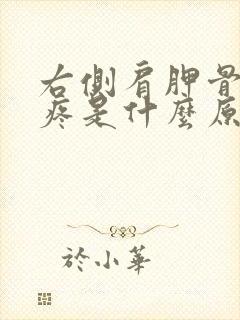 右側肩胛骨
疼是什麼原
於小華